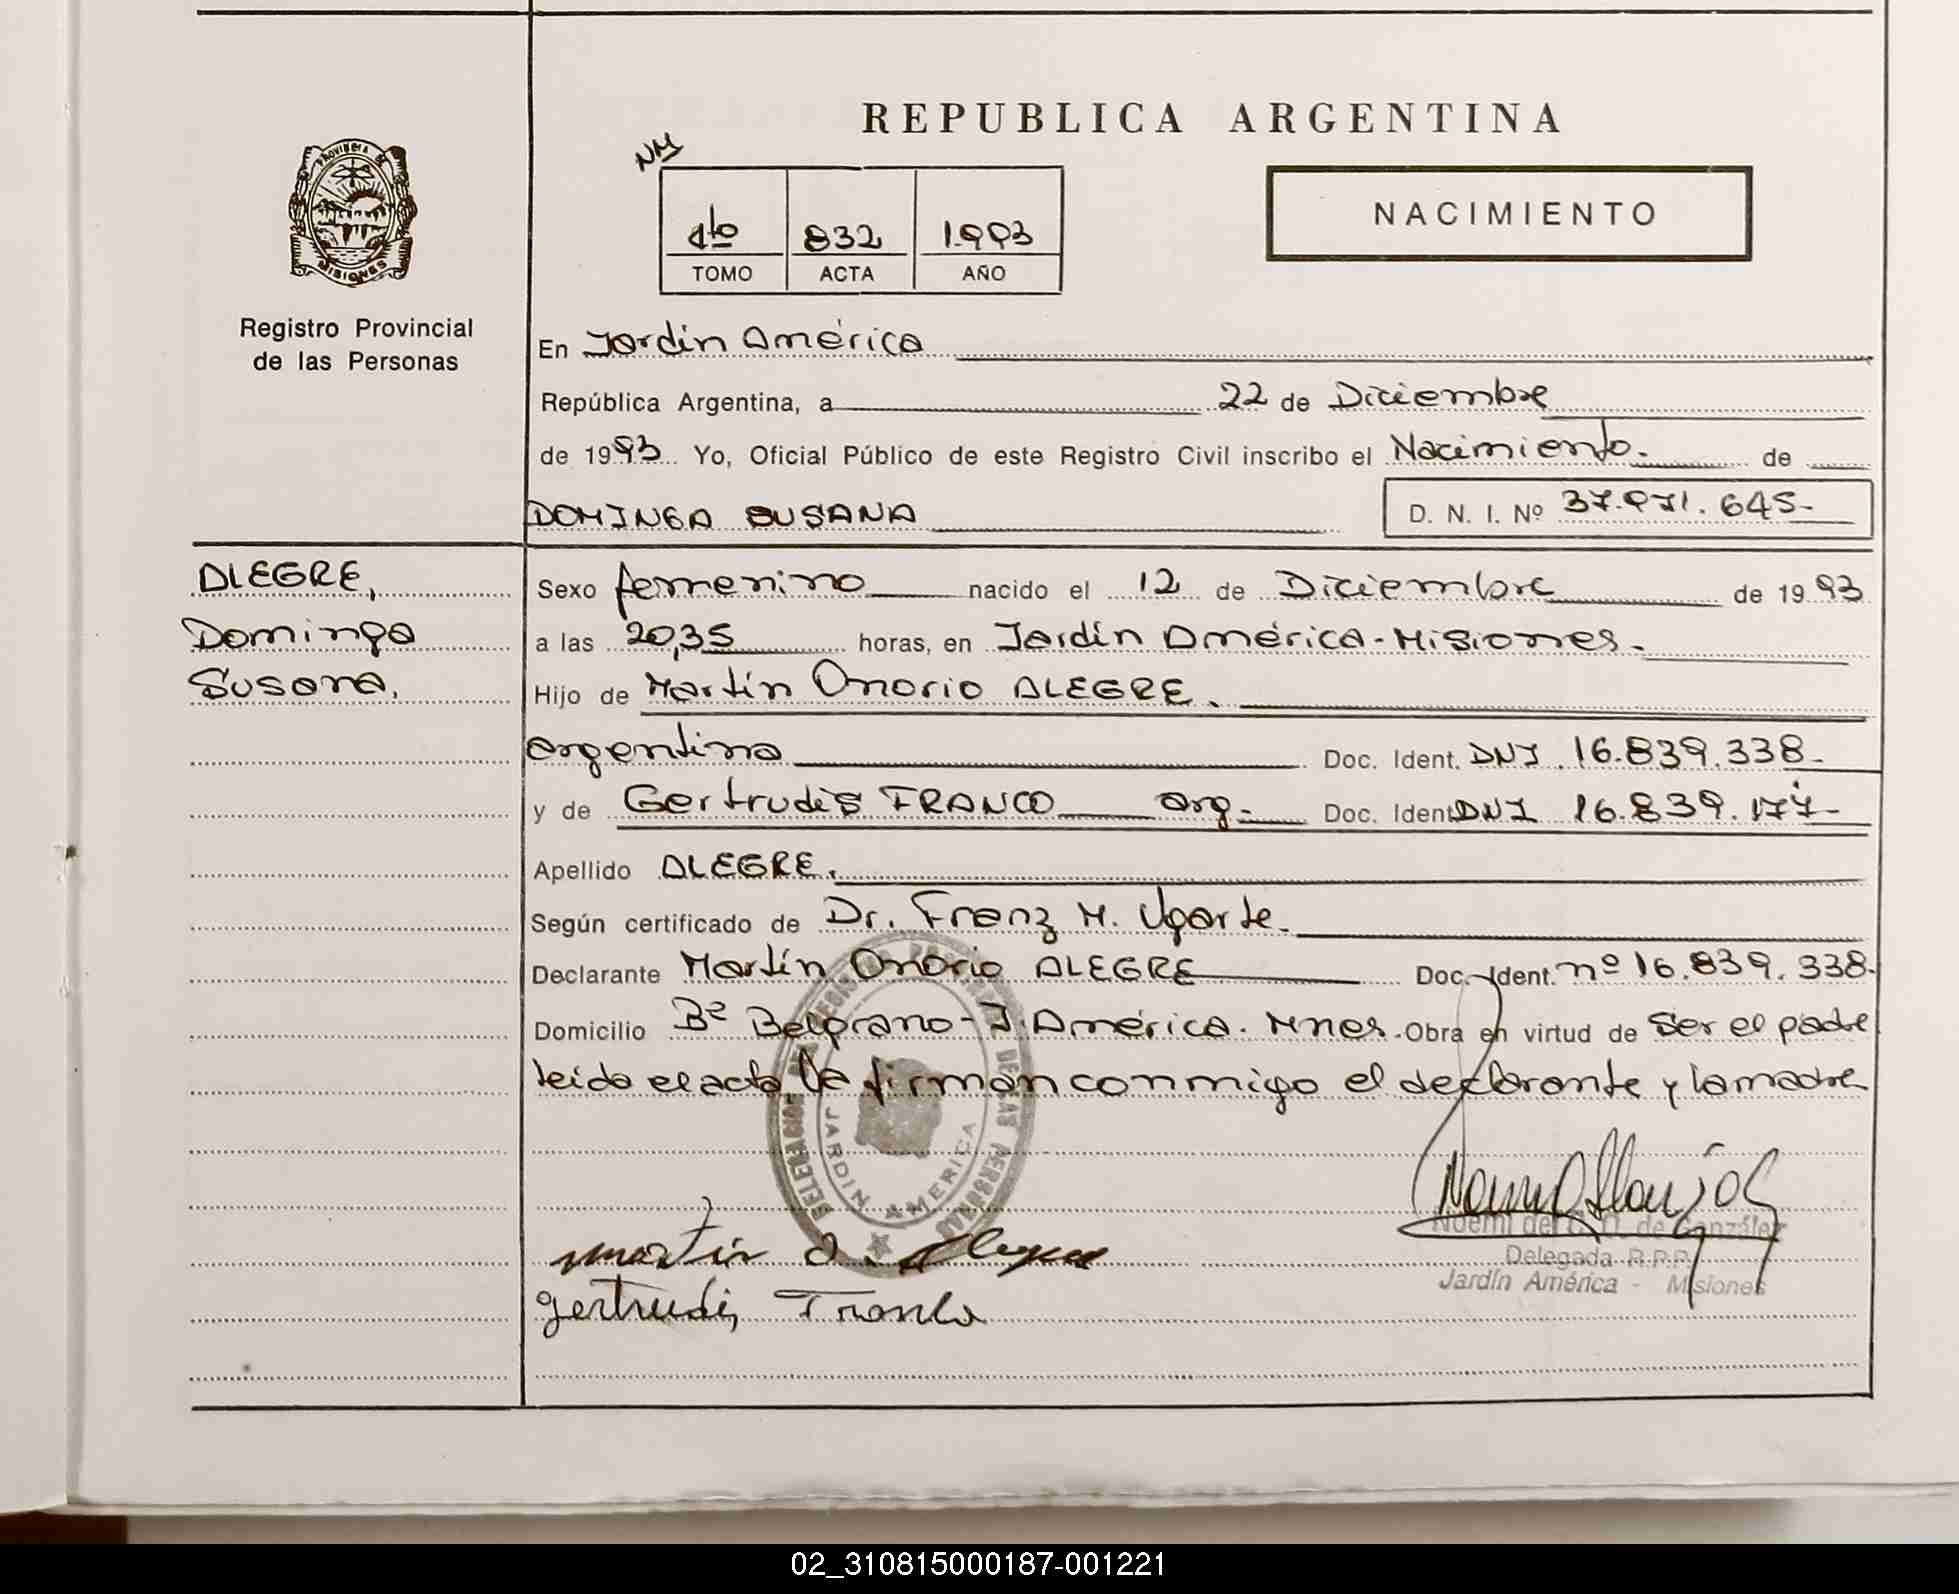 REPUBLICA ARGENTINA
PROVINCIA DE
MISIONES
Registro Provincial
de las Personas
NM
4to 832 1.993
TOMO ACTA AÑO
NACIMIENTO
En Jardín América
República Argentina, a 22 de Diciembre
de 1993 Yo, Oficial Público de este Registro Civil inscribo el Nacimiento. de
DOMINGA SUSANA D. N. I. Nº 37.971.645-
ALEGRE,
Dominga
Susana.
Sexo femenino nacido el 12 de Diciembre de 1993
a las 20,35 horas, en Jardín América-Misiones.
Hijo de Martín Onorio ALEGRE.
argentina Doc. Ident. DNI 16.839.338-
y de Gertrudis FRANCO arg.- Doc. Ident. DNI 16.839.177-
Apellido ALEGRE.
Según certificado de Dr. Franz M. Ugarte.
Declarante Martín Onorio ALEGRE Doc. Ident. nº 16.839.338-
Domicilio Bº Belgrano-J. América. Mnes. Obra en virtud de ser el padre
leida el acta la firman conmigo el declarante y la madre
DELEGACION DEL REGISTRO PROVINCIAL DE LAS PERSONAS
JARDIN AMERICA
Noemí del C. D. de González
Delegada R.P.P.
Jardín América - Misiones
Martin O. Alegre
Gertrudis Franco
02_310815000187-001221